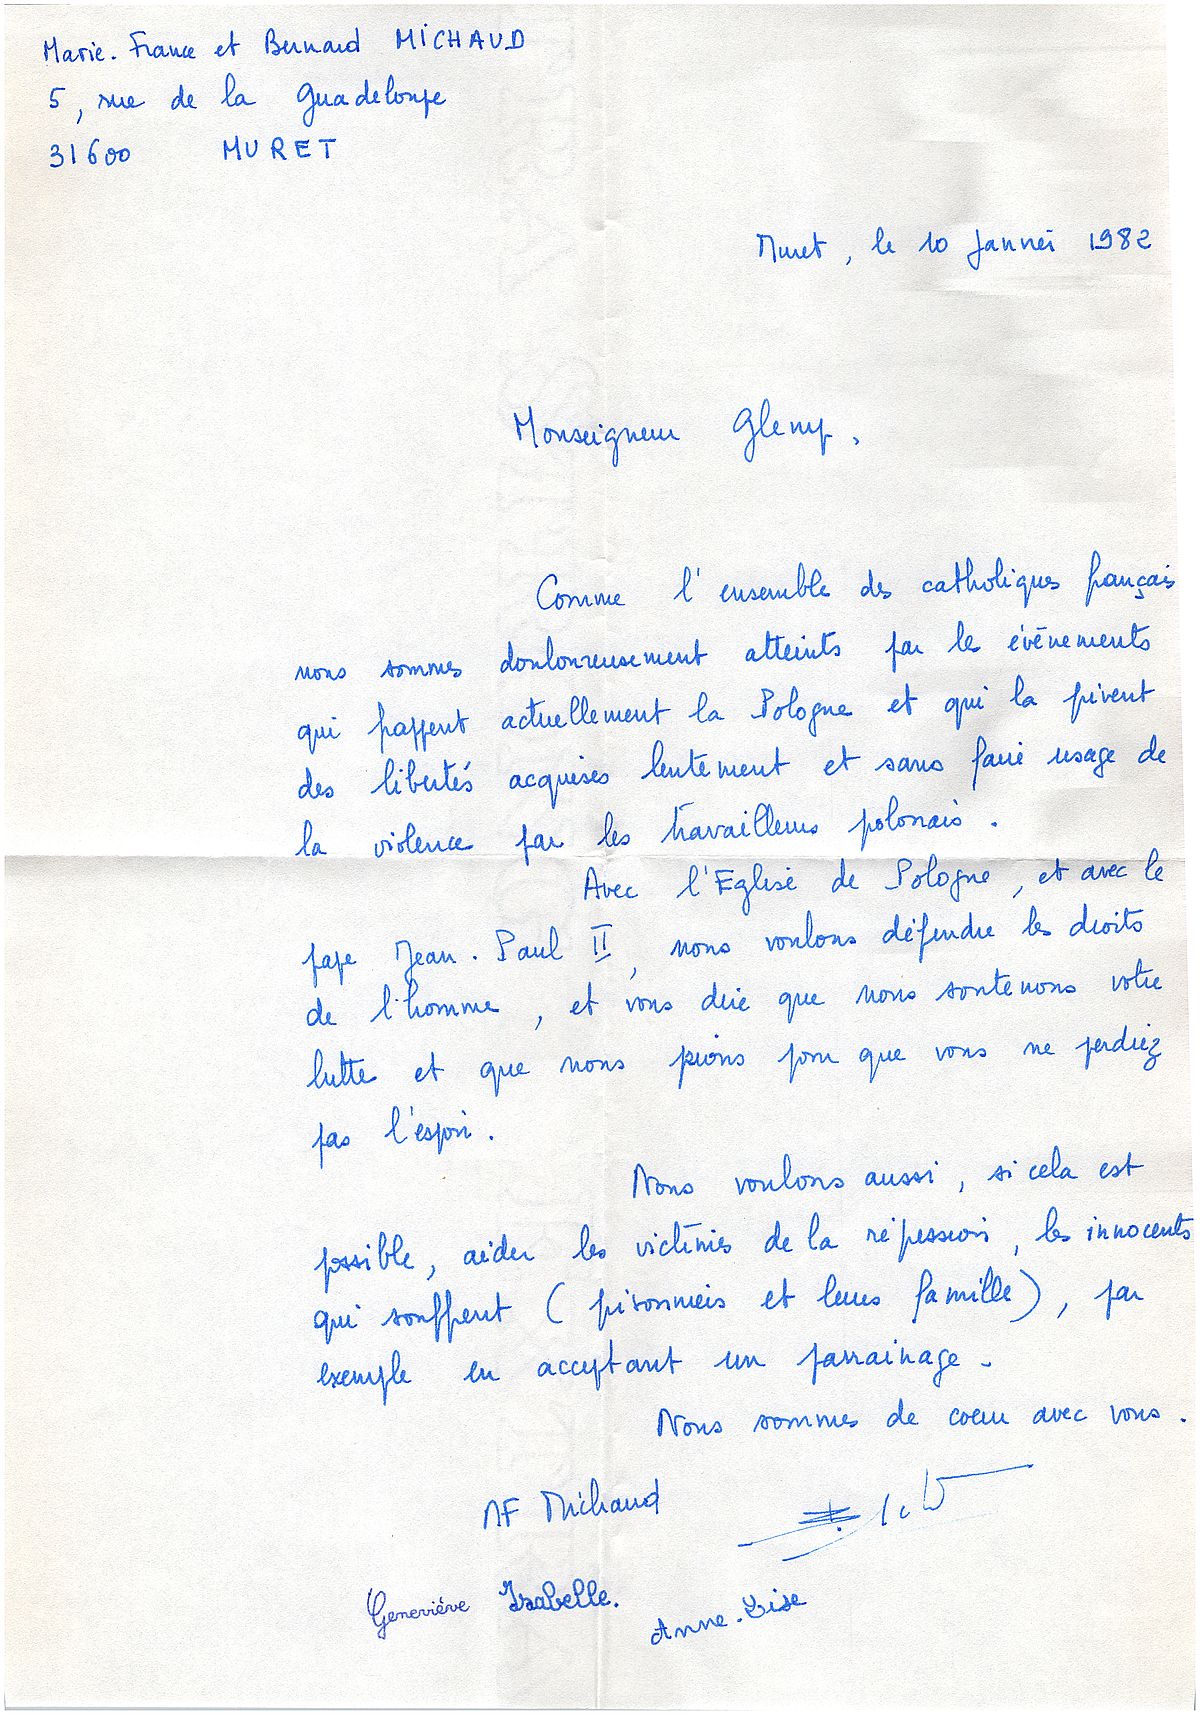 Marie-France et Bernard MICHAUD
5, rue de la Guadeloupe
31600 MURET
Muret, le 10 Janvier 1982
Monseigneur Glemp,
Comme l'ensemble des catholiques français
nous sommes douloureusement atteints par les événements
qui frappent actuellement la Pologne et qui la privent
des libertés acquises lentement et sans faire usage de
la violence par les travailleurs polonais.
Avec l'Eglise de Pologne, et avec le
pape Jean-Paul II, nous voulons défendre les droits
de l'homme, et vous dire que nous soutenons votre
lutte et que nous prions pour que vous ne perdiez
pas l'espoir.
Nous voulons aussi, si cela est
possible, aider les victimes de la répression, les innocents
qui souffrent (prisonniers et leurs famille), par
exemple en acceptant un parrainage.
Nous sommes de coeur avec vous.
MF Michaud
Geneviève Isabelle.
Anne-Lise